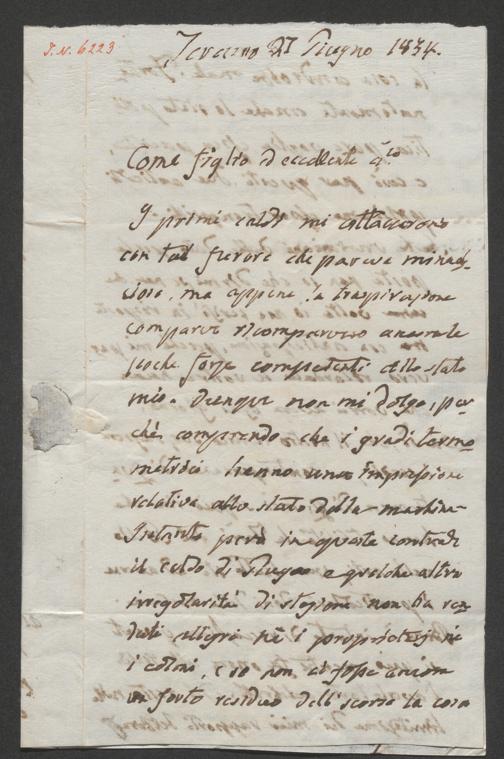 I.N. 6223
27 Giugno 1834.
Come figlio ed eccellente a.co
I primi caldi mi attaccarono
con tal furore che pareva minac-
cioso, ma appena la traspirazione
comparve ricomparvero ancora le
poche forze competenti allo stato
mio. Dunque non mi dolgo, per-
chè comprendo che i gradi termo-
metrici hanno una impressione
relativa allo stato della machina.
Frattanto però in queste contrade
il caldo di Giugno e qualche altra
irregolarità di stagione non ha ren-
duti allegri nè i proprietarj nè
i coloni, e se non ci fosse ancora
un forte residuo dell'scorso la cosa